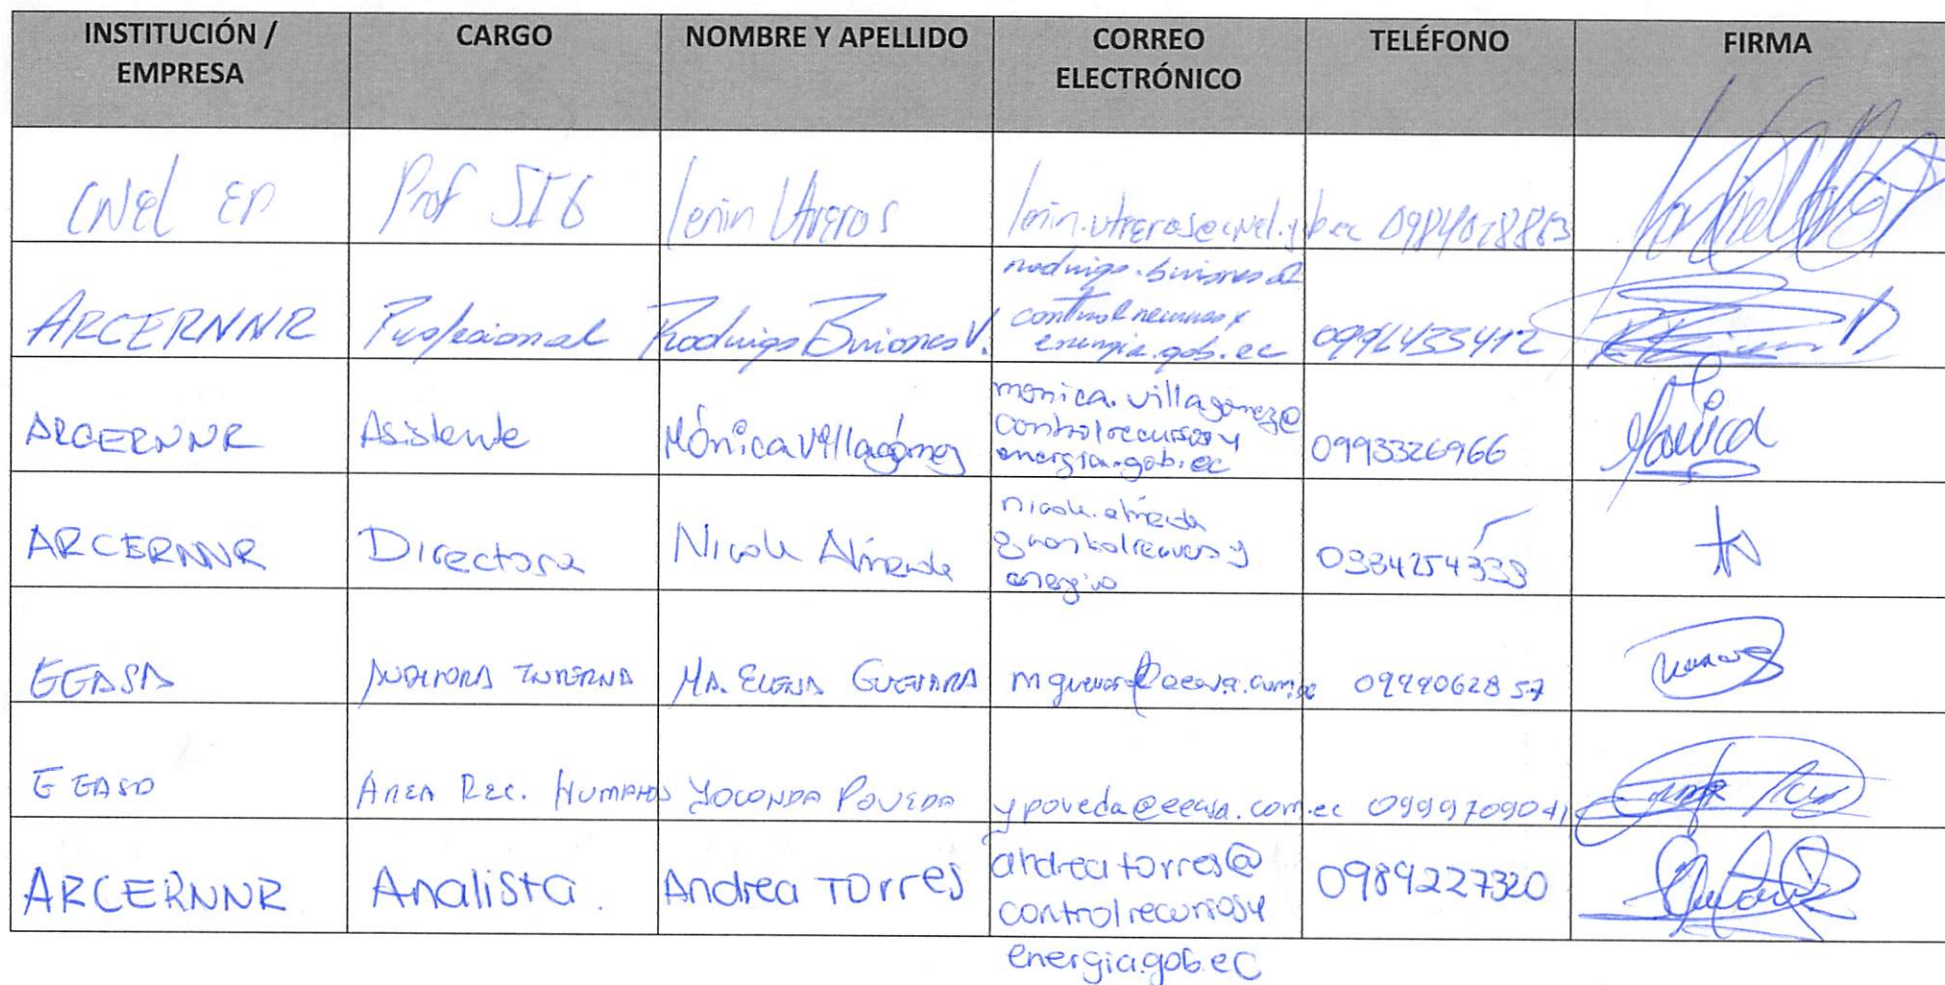 INSTITUCIÓN / EMPRESA CARGO NOMBRE Y APELLIDO CORREO ELECTRÓNICO TELÉFONO FIRMA
CNEL EP Prof SIG lenin Utreros lenin.utreros@cnel.gob.ec
ARCERNNR Profesional Rodrigo Briones V. rodrigo.briones@
control recursos y
energia.gob.ec
ARCERNNR Asistente Mónica Villagómez monica.villagomez@
controlrecursosy
energia.gob.ec 0993326966
ARCERNNR Directora Nicole Almeida nicole.almeida
@controlrecursosy
energia
EEASA AUDITORA INTERNA MA. ELENA GUEVARA 0999062857
EEASA AREA REC. HUMANOS YOCONDA POVEDA ypoveda@eeasa.com.ec 0999709041
ARCERNNR Analista. Andrea Torres andrea torres@
controlrecursosy
energia.gob.ec 0989227320